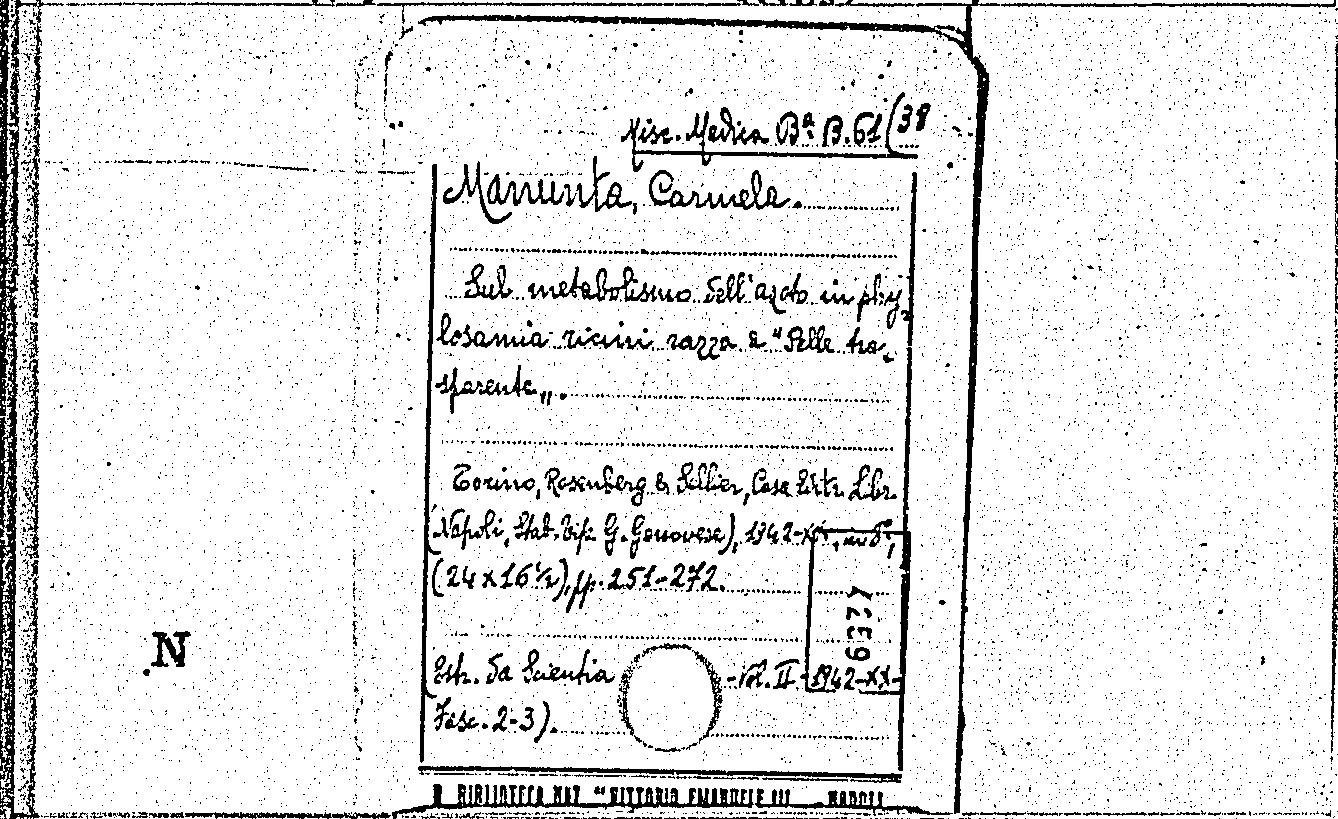 Misc. Medica Bª B.61(38
Manunta, Carmela.
Sul metabolismo dell'azoto in phy-
losamia ricini razza a "Pelle tra-
sparente„.
Torino, Rosenberg & Sellier, Casa Editr. Libr.
(Napoli, Stab. Tip. G. Genovese), 1942-XX, in 8°,
(24 x 16 ½), pp. 251-272.
6337
N
(Estr. da Scientia - Vol. II - 1942-XX-
Fasc. 2-3).
R BIBLIOTECA NAZ "VITTORIO EMANUELE III NAPOLI